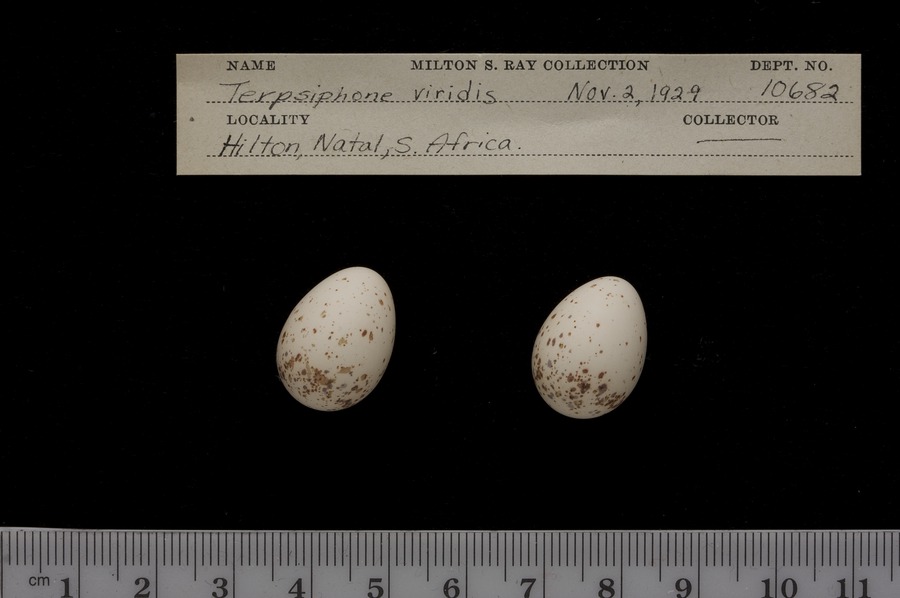 NAME MILTON S. RAY COLLECTION DEPT. NO.
Terpsiphone viridis Nov. 2, 1929 10682
LOCALITY COLLECTOR
Hilton, Natal, S. Africa.
cm 1 2 3 4 5 6 7 8 9 10 11